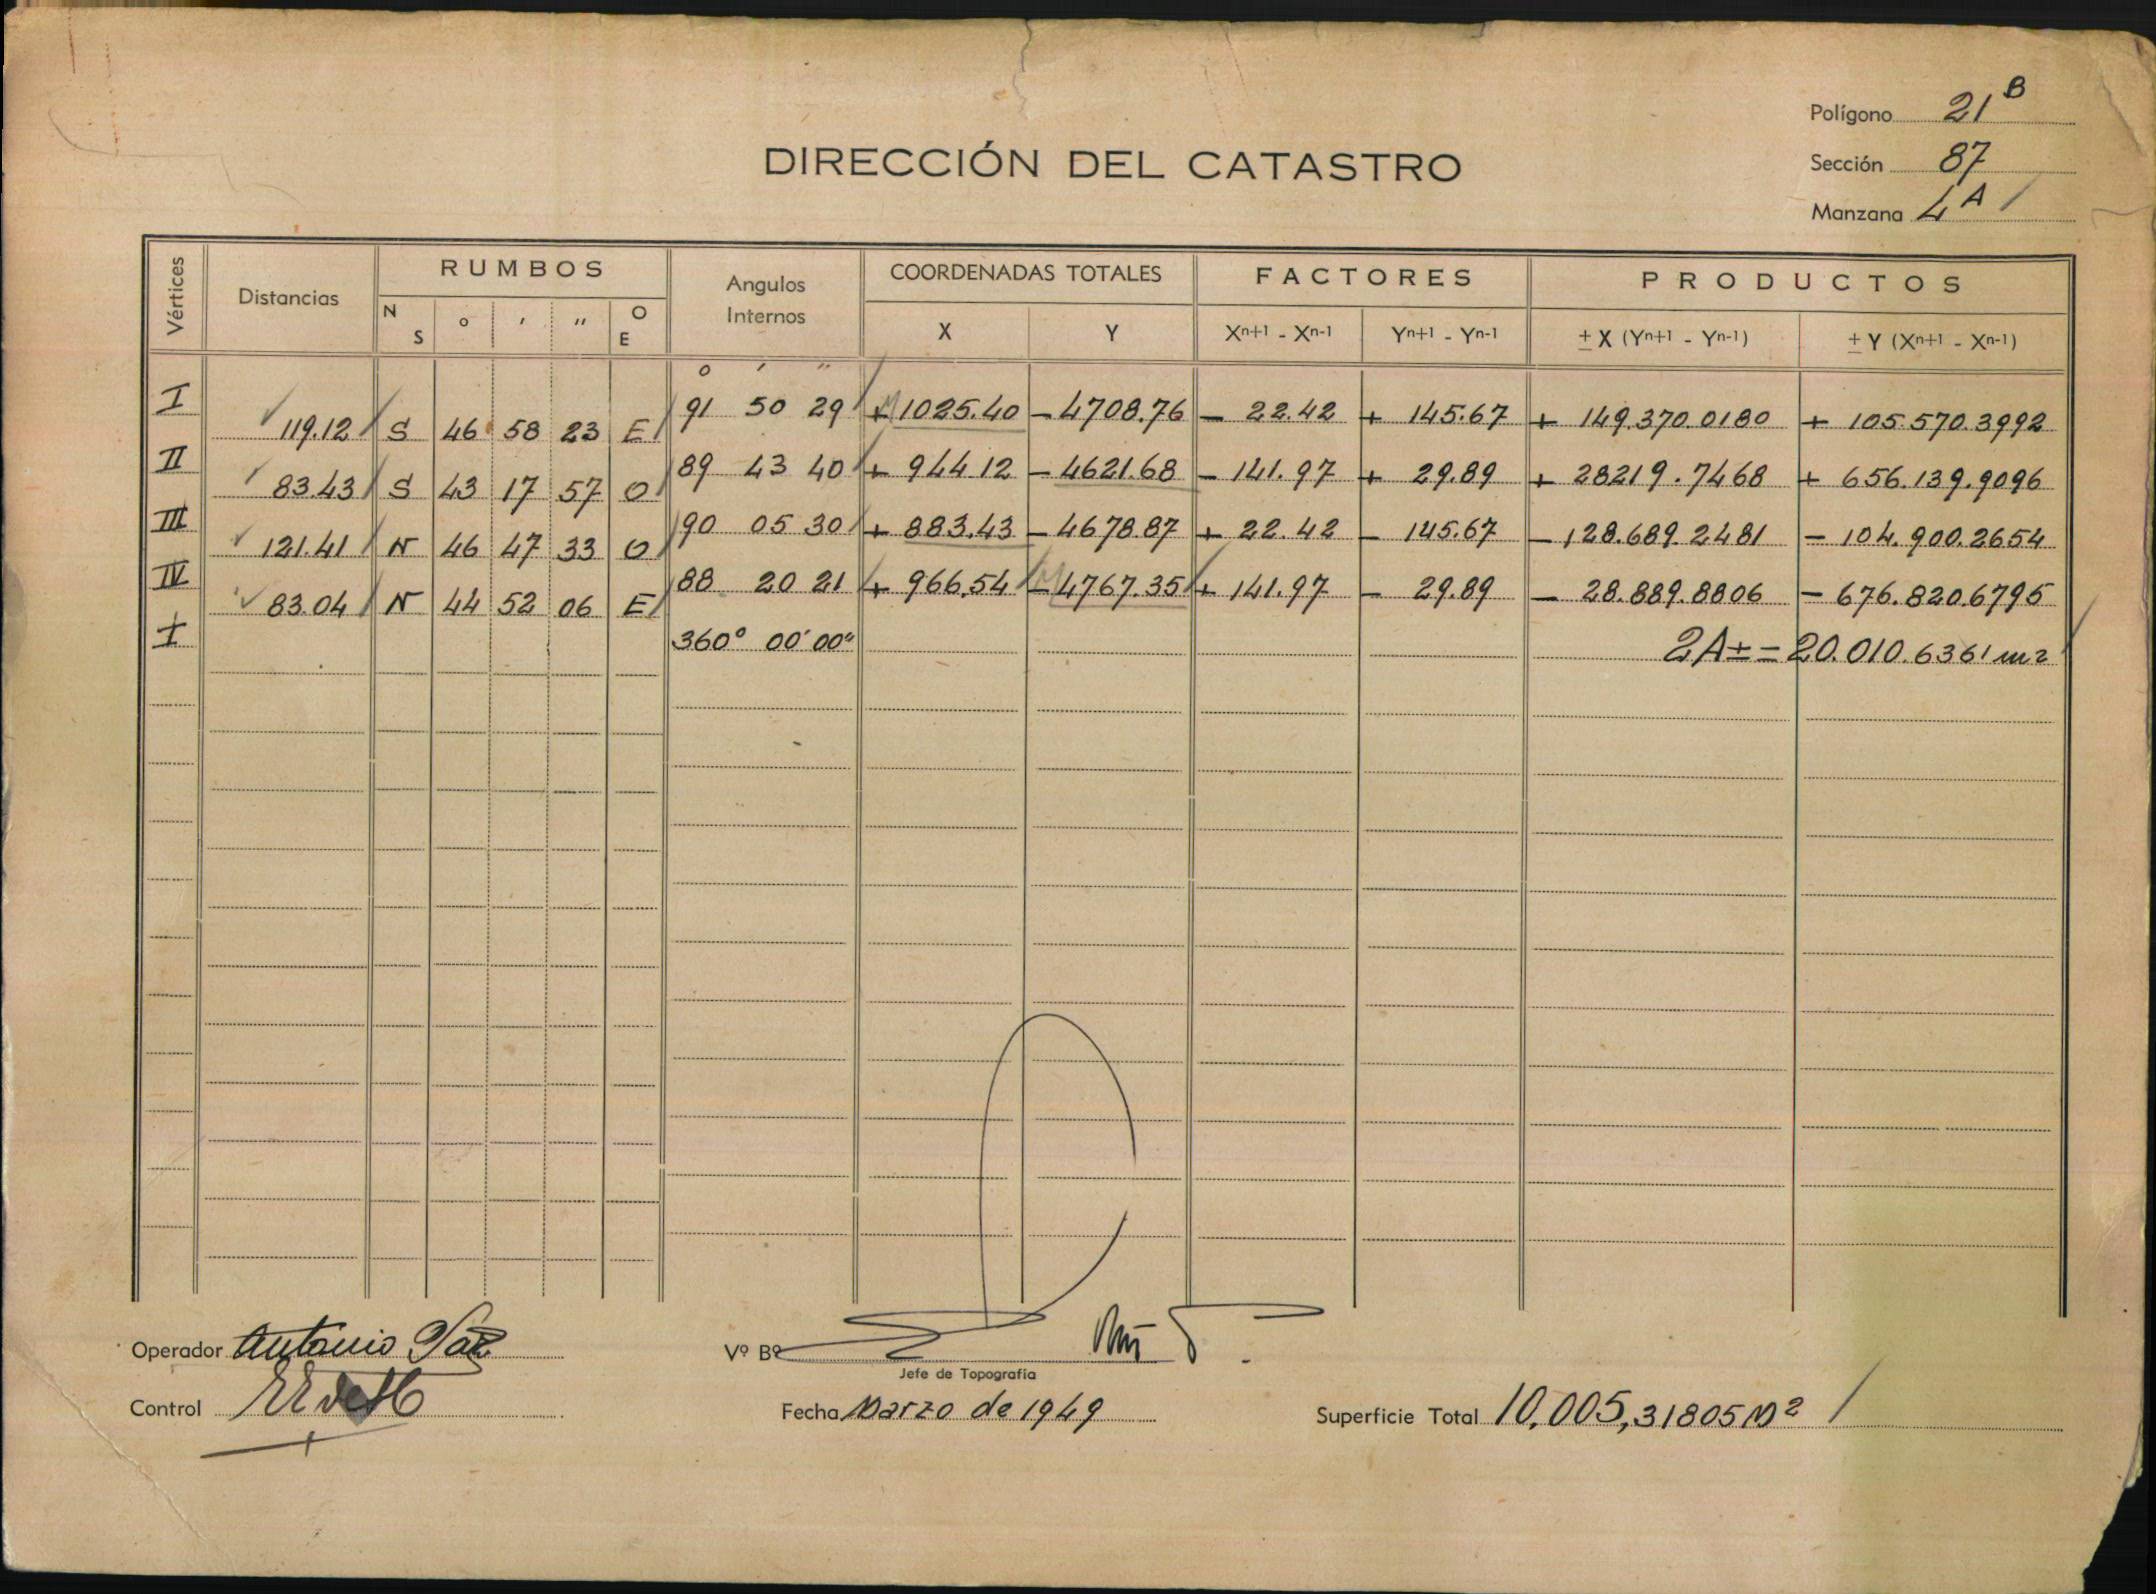 Polígono 21 B
DIRECCIÓN DEL CATASTRO
Sección 87
Manzana 4 A
Vértices Distancias RUMBOS Angulos Internos COORDENADAS TOTALES FACTORES PRODUCTOS
N S ° ' " O E X Y Xn+1 - Xn-1 Yn+1 - Yn-1 ± X (Yn+1 - Yn-1) ± Y (Xn+1 - Xn-1)
° ' "
I 91 50 29 + 1025.40 - 4708.76 - 22.42 + 145.67 + 149.370.0180 + 105.570.3992
119.12 S 46 58 23 E
II 89 43 40 + 944.12 - 4621.68 - 141.97 + 29.89 + 28219.7468 + 656.139.9096
83.43 S 43 17 57 O
III 90 05 30 + 883.43 - 4678.87 + 22.42 - 145.67 - 128.689.2481 - 104.900.2654
121.41 N 46 47 33 O
IV 88 20 21 + 966.54 - 4767.35 + 141.97 - 29.89 - 28.889.8806 - 676.820.6795
83.04 N 44 52 06 E
I 360° 00' 00" 2A± = 20.010.6361 m2
Operador Antonio Paz
Vº Bº
Jefe de Topografía
Control
Fecha Marzo de 1949
Superficie Total 10,005,31805 M2